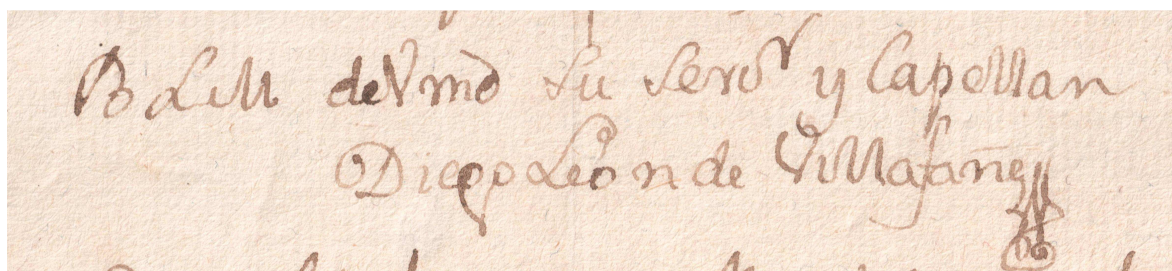 B L M de Vmd su serv.r y Capellan
Diego Leon de Villafañe